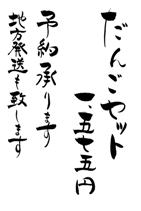 だんごセット
一、五七五円
予約承ります
地方発送も致します